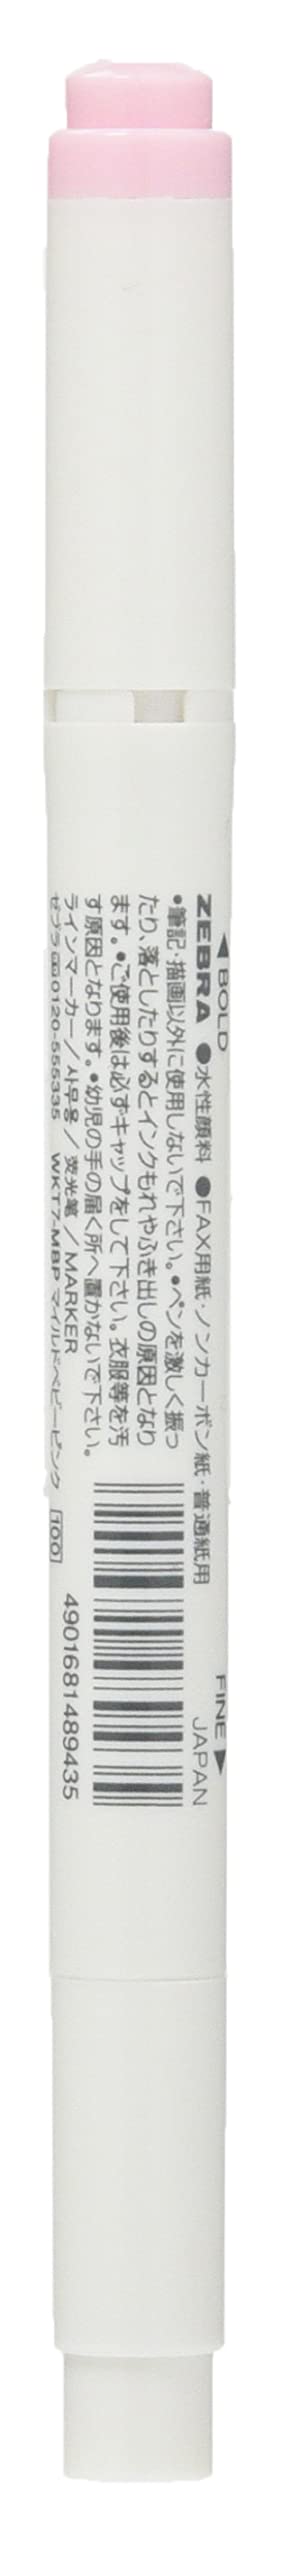 ◀BOLD
FINE▶
ZEBRA ●水性顔料 ●FAX用紙・ノンカーボン紙・普通紙用
JAPAN
•筆記・描画以外に使用しないで下さい。•ペンを激しく振っ
たり、落としたりするとインクもれやふき出しの原因となり
ます。•ご使用後は必ずキャップをして下さい。衣服等を汚
す原因となります。•幼児の手の届く所へ置かないで下さい。
ラインマーカー/사무용/荧光笔/MARKER
ゼブラ 0120-555335 WKT7-MBP マイルドベビーピンク 100
4901681489435